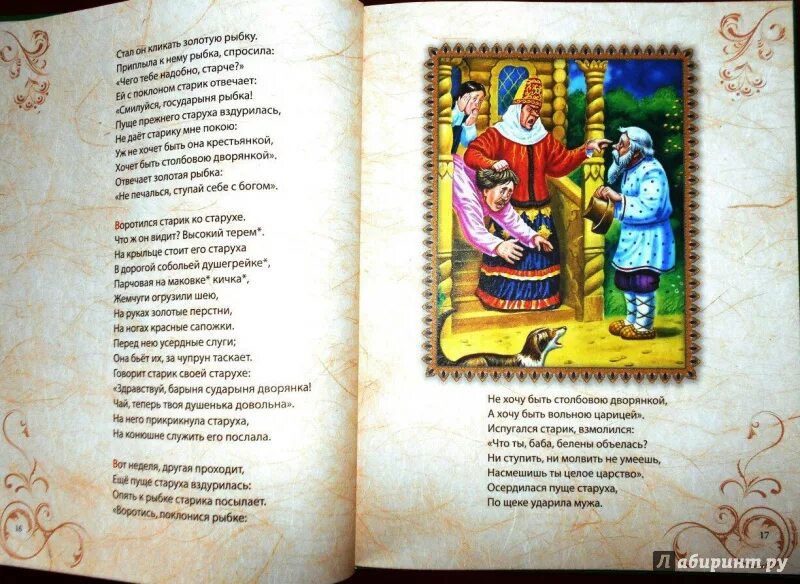 Стал он кликать золотую рыбку.
Приплыла к нему рыбка, спросила:
«Чего тебе надобно, старче?»
Ей с поклоном старик отвечает:
«Смилуйся, государыня рыбка!
Пуще прежнего старуха вздурилась,
Не даёт старику мне покою:
Уж не хочет быть она крестьянкой,
Хочет быть столбовою дворянкой».
Отвечает золотая рыбка:
«Не печалься, ступай себе с богом».
Воротился старик ко старухе.
Что ж он видит? Высокий терем*.
На крыльце стоит его старуха
В дорогой собольей душегрейке*,
Парчовая на маковке* кичка*,
Жемчуги огрузили шею,
На руках золотые перстни,
На ногах красные сапожки.
Перед нею усердные слуги;
Она бьёт их, за чупрун таскает.
Говорит старик своей старухе:
«Здравствуй, барыня сударыня дворянка!
Чай, теперь твоя душенька довольна».
На него прикрикнула старуха,
На конюшне служить его послала.
Вот неделя, другая проходит,
Ещё пуще старуха вздурилась:
Опять к рыбке старика посылает.
«Воротись, поклонися рыбке:
16
Не хочу быть столбовою дворянкой,
А хочу быть вольною царицей».
Испугался старик, взмолился:
«Что ты, баба, белены объелась?
Ни ступить, ни молвить не умеешь,
Насмешишь ты целое царство».
Осердилася пуще старуха,
По щеке ударила мужа.
17
Лабиринт.ру